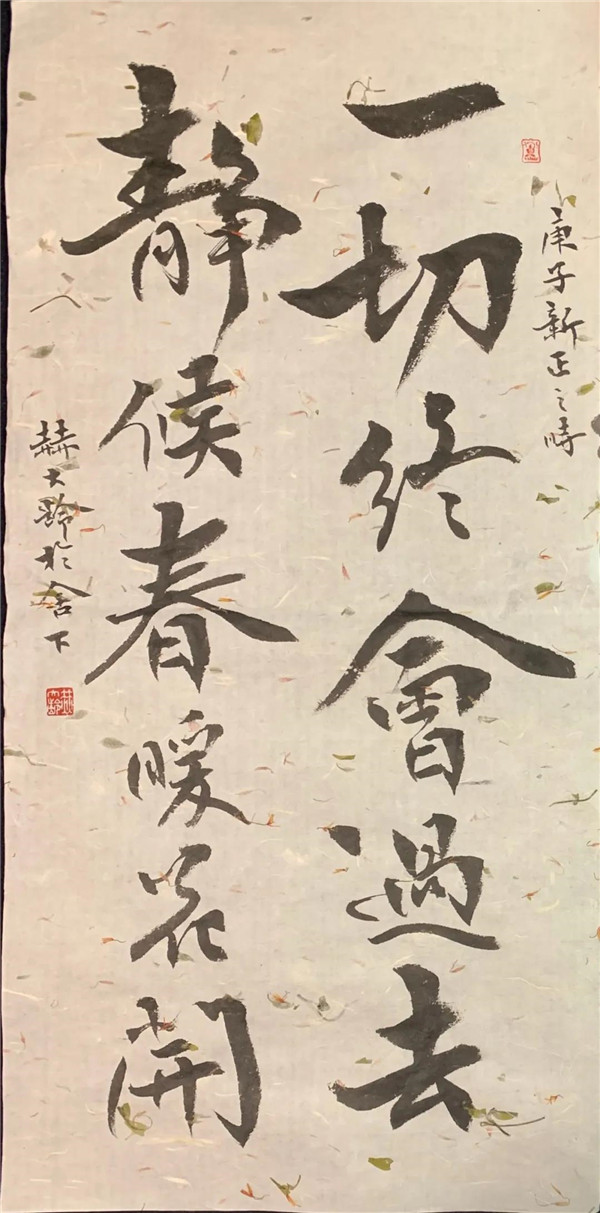 庚子新正之時
一切終會過去
靜候春暖花開
赫大齡於舍下